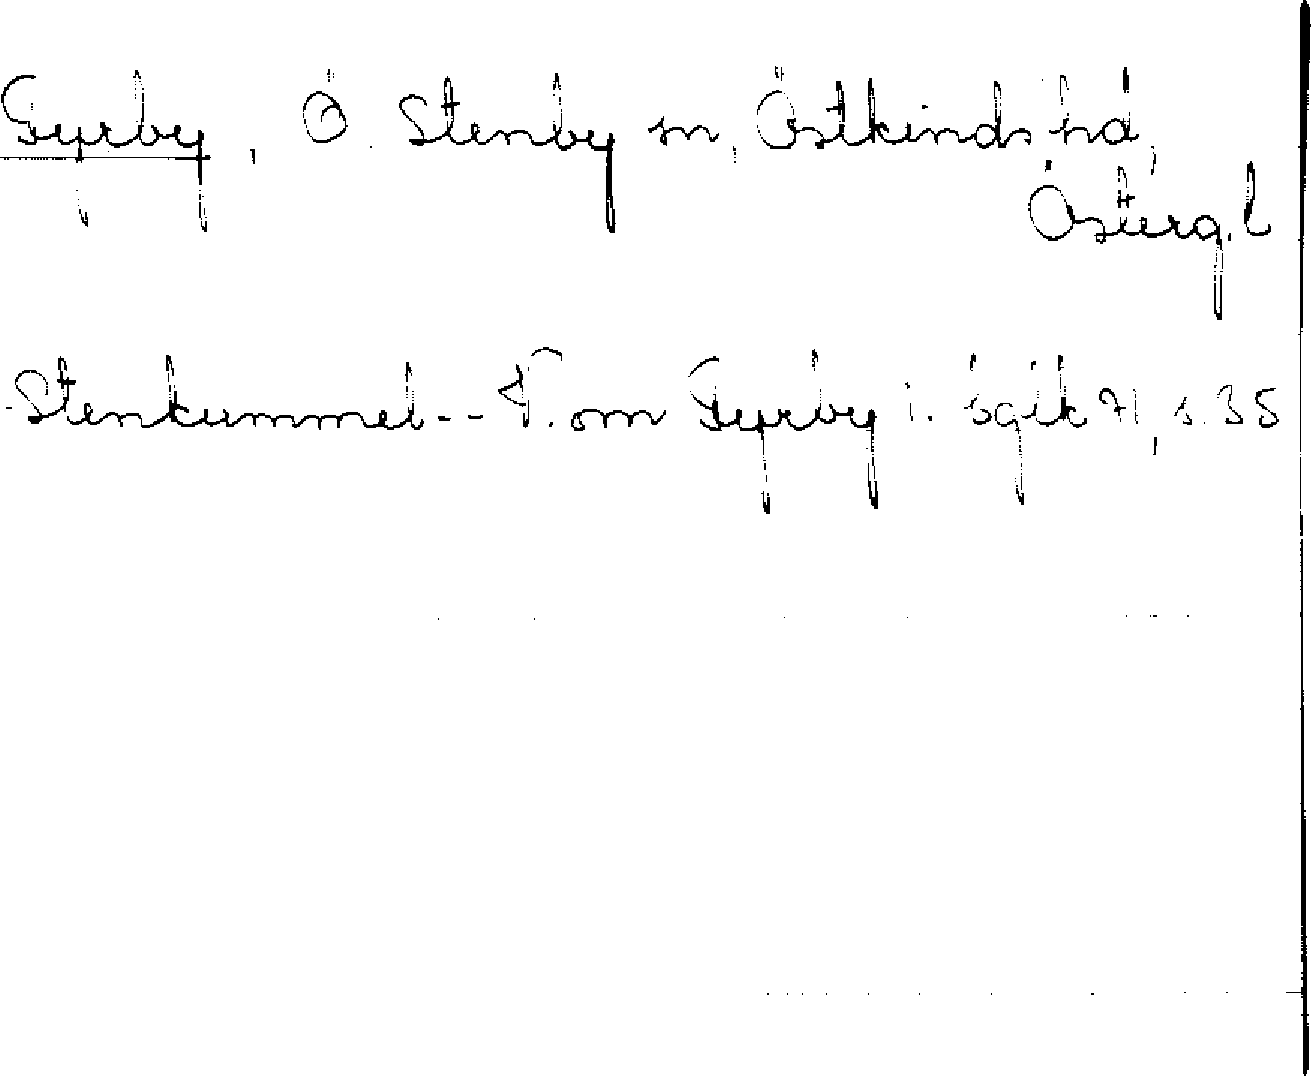 Gyrby, Ö. Stenby sn, Östkinds hd,
Österg. l
Stenkummel-- V. om Gyrby i. ägik 71, s. 35